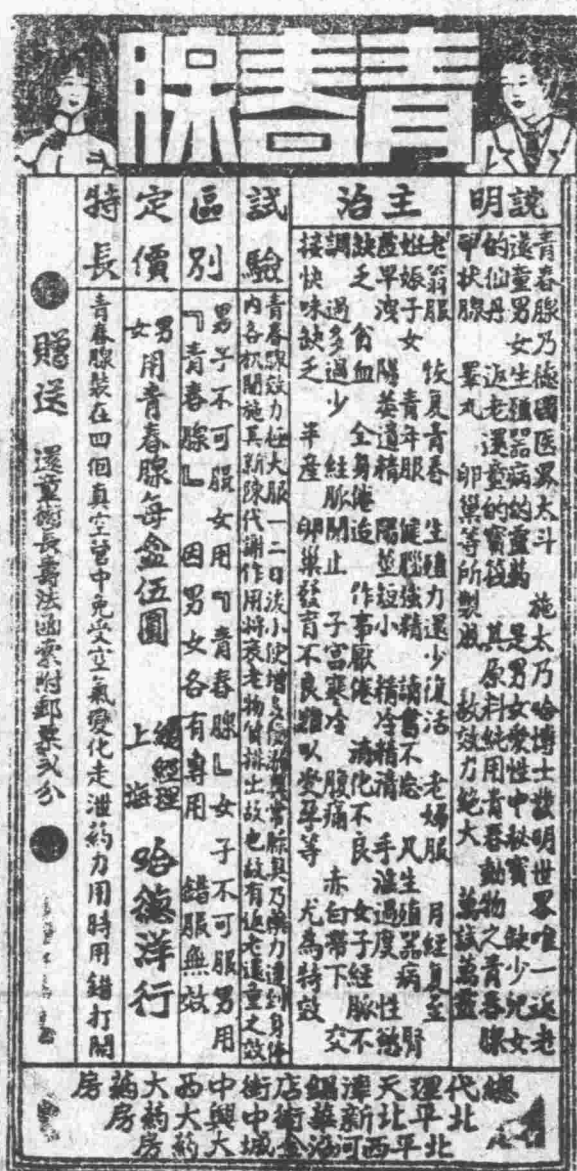 青春腺
説明
青春腺乃德國医界太斗 施太乃哈博士發明世界唯一返老
還童男女生殖器病的靈药 是男女愛性中秘寳 缺少兒女
的仙丹 返老還童的寳筏 其原料純用青春動物之青春腺
甲状腺 睪丸 卵巢等所製成 故效力絶大 萬試萬靈
主治
老翁服 恢复青春 生殖力還少復活 老婦服 月經复至
姙娠子女 青年服 健腦強精 讀書不忘 凡生殖器病 腎
虚早洩 陽萎遺精 陽莖短小 精冷精清 手淫過度 性慾
缺乏 貧血 全身倦怠 作事厭倦 消化不良 女子經脈不
調 過多過少 經脈閉止 子宮寒冷 腹痛 赤白帶下 交
接快味缺乏 半産 卵巢發育不良難以受孕等 尤為特效
試驗
青春腺效力極大服一二日後小便增多 異常腺臭乃藥力達到身体
内各机関施其新陳代謝作用將衰老物質排出故也故有返老還童之效
區別
男子不可服女用『青春腺』女子不可服男用
『青春腺』 因男女各有專用 錯服無效
定價
男女用青春腺每盒伍圓
總經理
上海
哈德洋行
特長
青春腺装在四個真空管中免受空氣變化走泄葯力用時用錯打開
贈送 還童術長壽法函索附郵票弍分
總代理天津鍋店街中西大葯房
北平北新華街中興大葯房
北平西河沿金城大药房